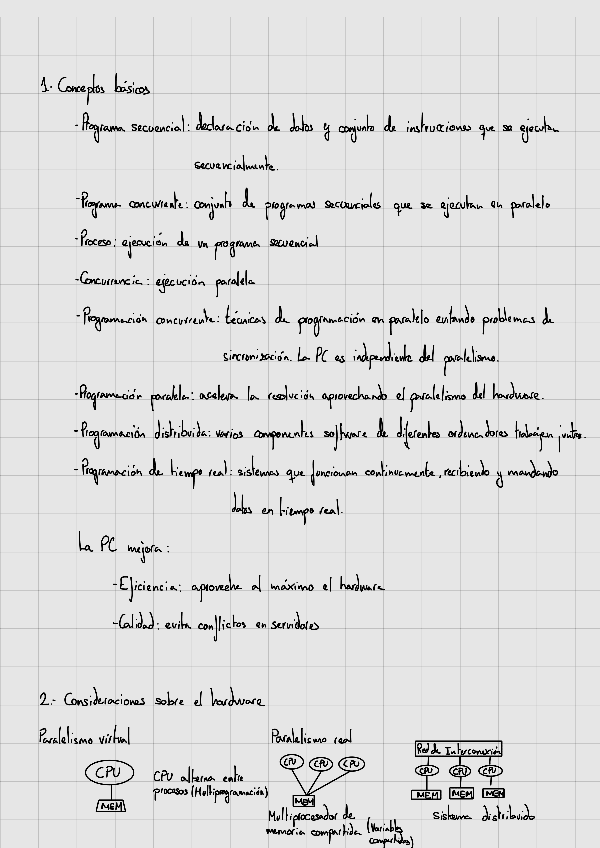 1.- Conceptos básicos
-Programa secuencial: declaración de datos y conjunto de instrucciones que se ejecutan
secuencialmente.
-Programa concurrente: conjunto de programas secuenciales que se ejecutan en paralelo
-Proceso: ejecución de un programa secuencial
-Concurrencia: ejecución paralela
-Programación concurrente: técnicas de programación en paralelo evitando problemas de
sincronización. La PC es independiente del paralelismo.
-Programación paralela: acelera la resolución aprovechando el paralelismo del hardware.
-Programación distribuida: varios componentes software de diferentes ordenadores trabajen juntos.
-Programación de tiempo real: sistemas que funcionan continuamente, recibiendo y mandando
datos en tiempo real.
La PC mejora:
-Eficiencia: aproveche al máximo el hardware
-Calidad: evita conflictos en servidores
2.- Consideraciones sobre el hardware
Paralelismo virtual
CPU
MEM
CPU alterna entre
procesos (Multiprogramación)
Paralelismo real
CPU CPU CPU
MEM
Multiprocesador de
memoria compartida (Variables
compartidas)
Red de Interconexión
CPU CPU CPU
MEM MEM MEM
Sistema distribuido